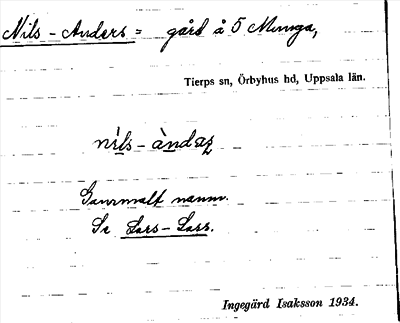 Nils-Anders = gård å 5 Munga,
Tierps sn, Örbyhus hd, Uppsala län.
nìls-àndaz
Gammalt namn.
Se Lars-Lars.
Ingegärd Isaksson 1934.